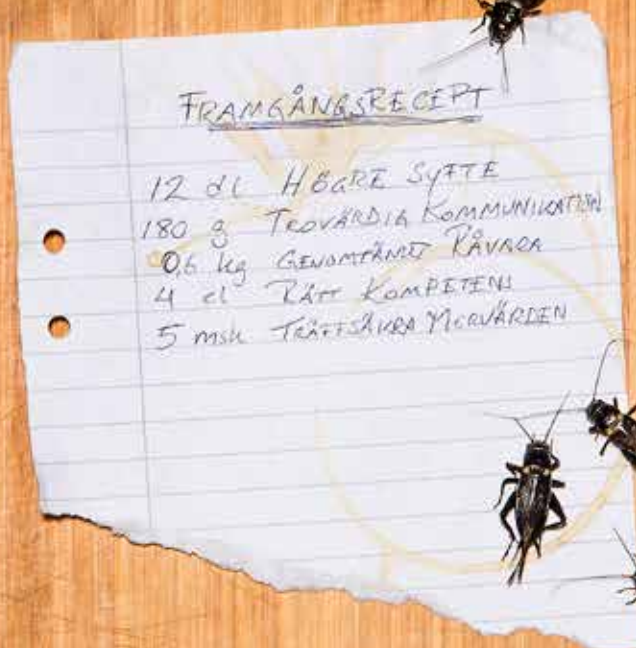 FRAMGÅNGSRECEPT
12 dl HÖGRE SYFTE
180 g TROVÄRDIG KOMMUNIKATION
0,6 kg GENOMTÄNKT RÅVARA
4 cl RÄTT KOMPETENS
5 msk TRÄFFSÄKRA MERVÄRDEN